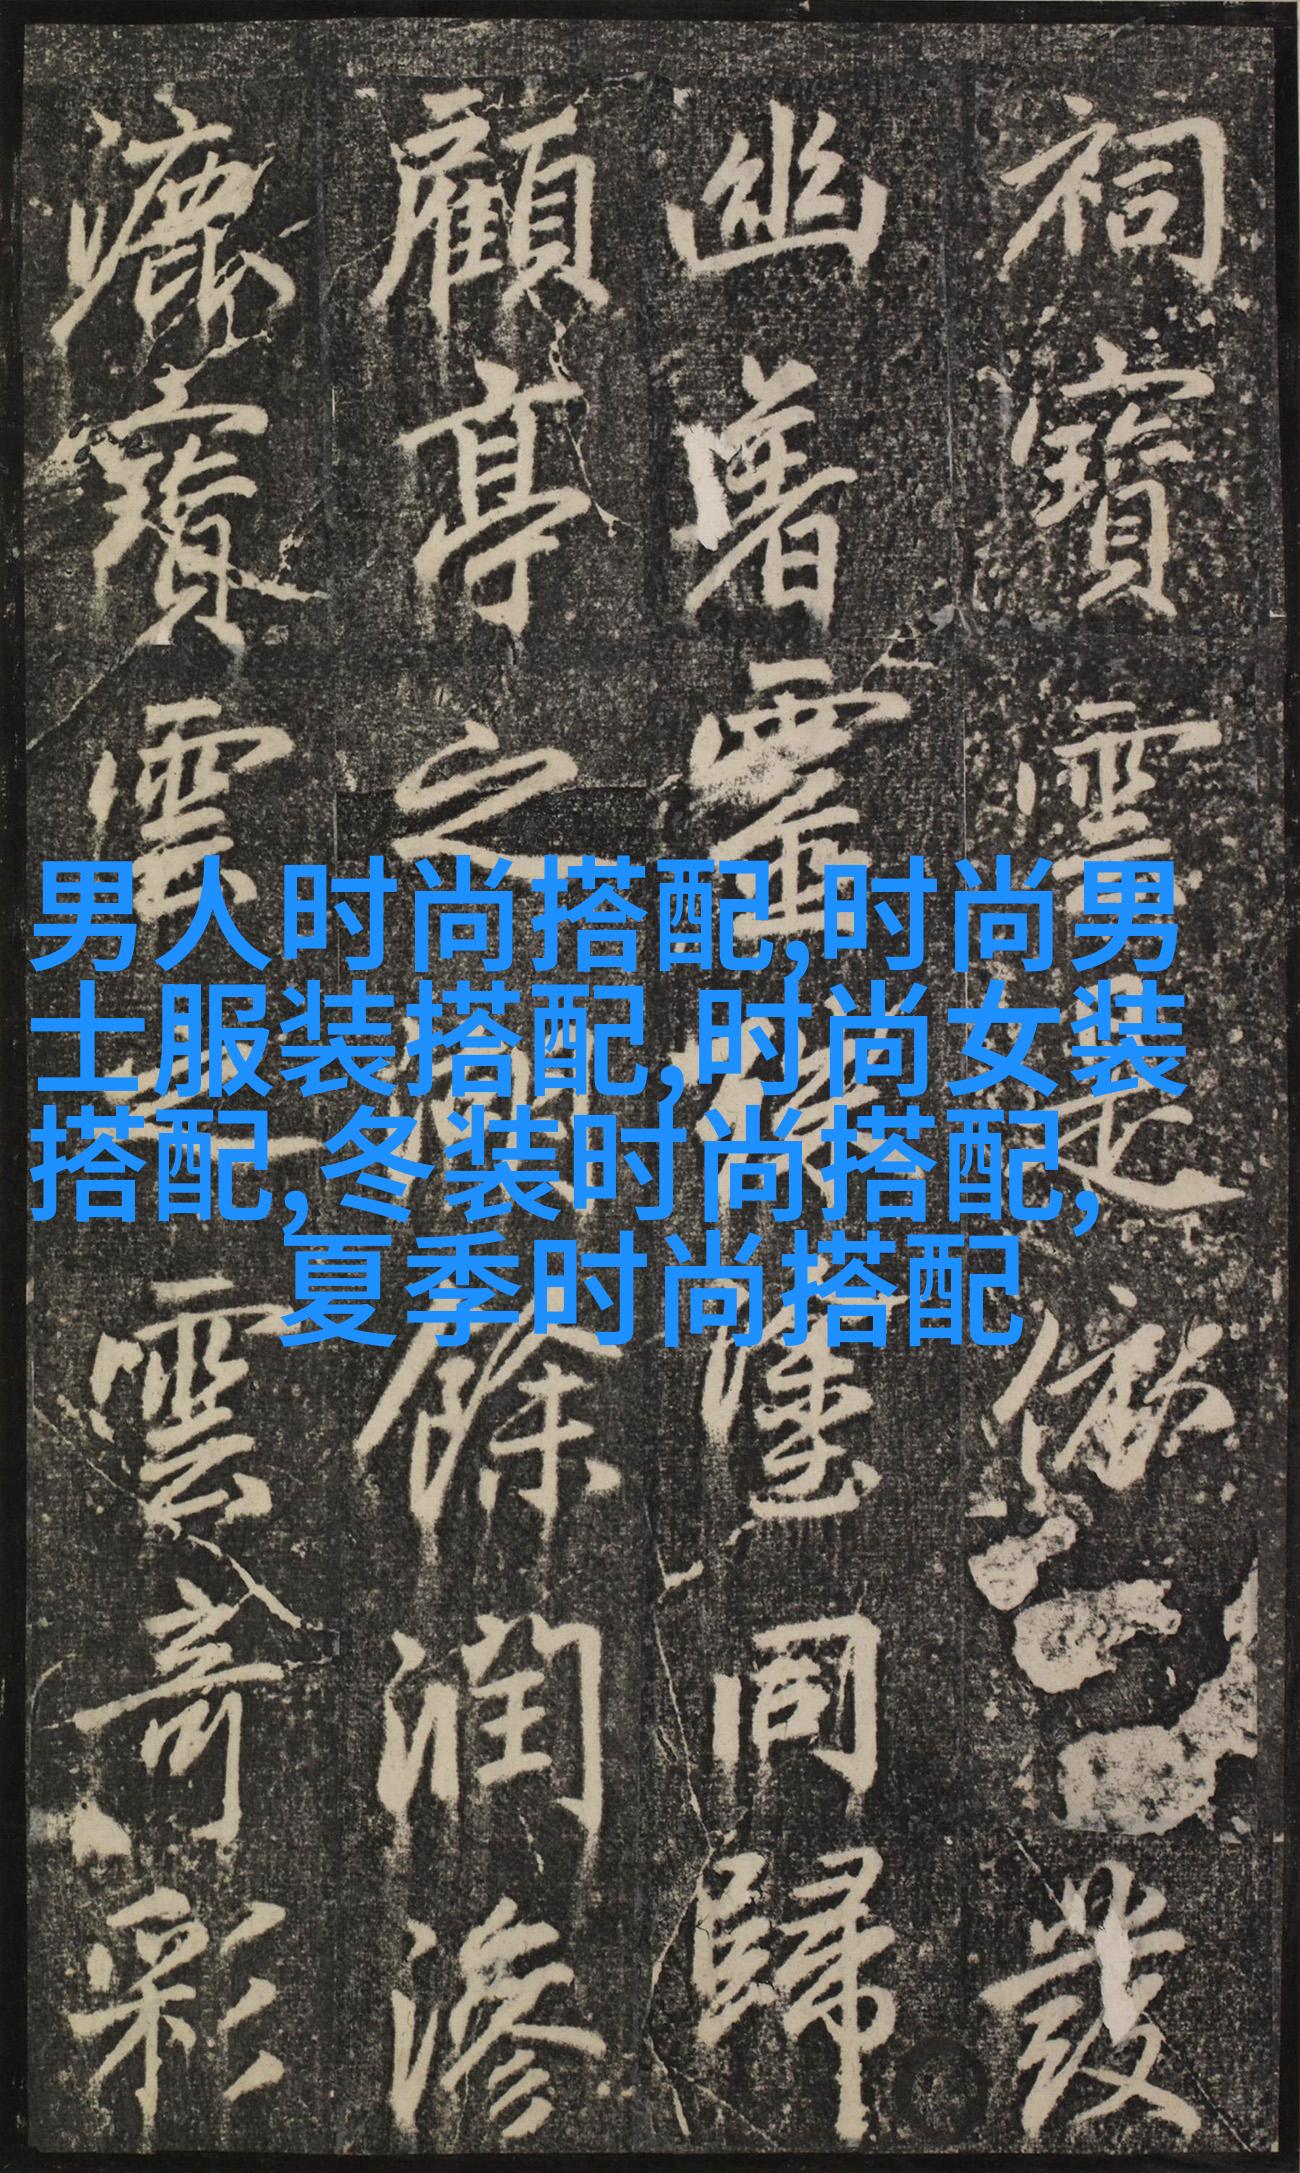 男人时尚搭配,时尚男
士服装搭配,时尚女装
搭配,冬装时尚搭配,
夏季时尚搭配
祠寶雲是發
幽署靈同歸
顧亭之餘潤滲
漉寶雲之雲奇彩